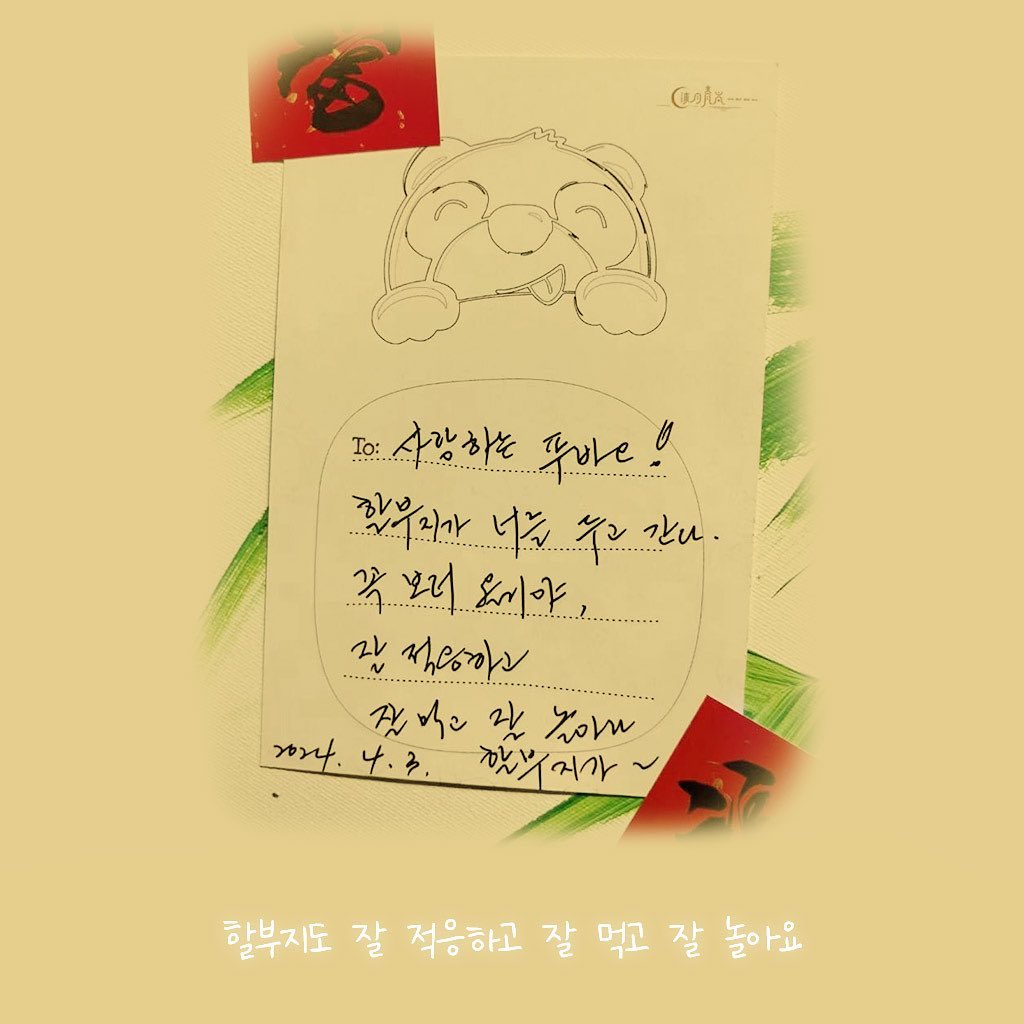 福
To: 사랑하는 푸바오!
할부지가 너를 두고 간다.
꼭 보러 올거야,
잘 적응하고
잘 먹고 잘 놀아라
2024. 4. 3. 할부지가~
할부지도 잘 적응하고 잘 먹고 잘 놀아요